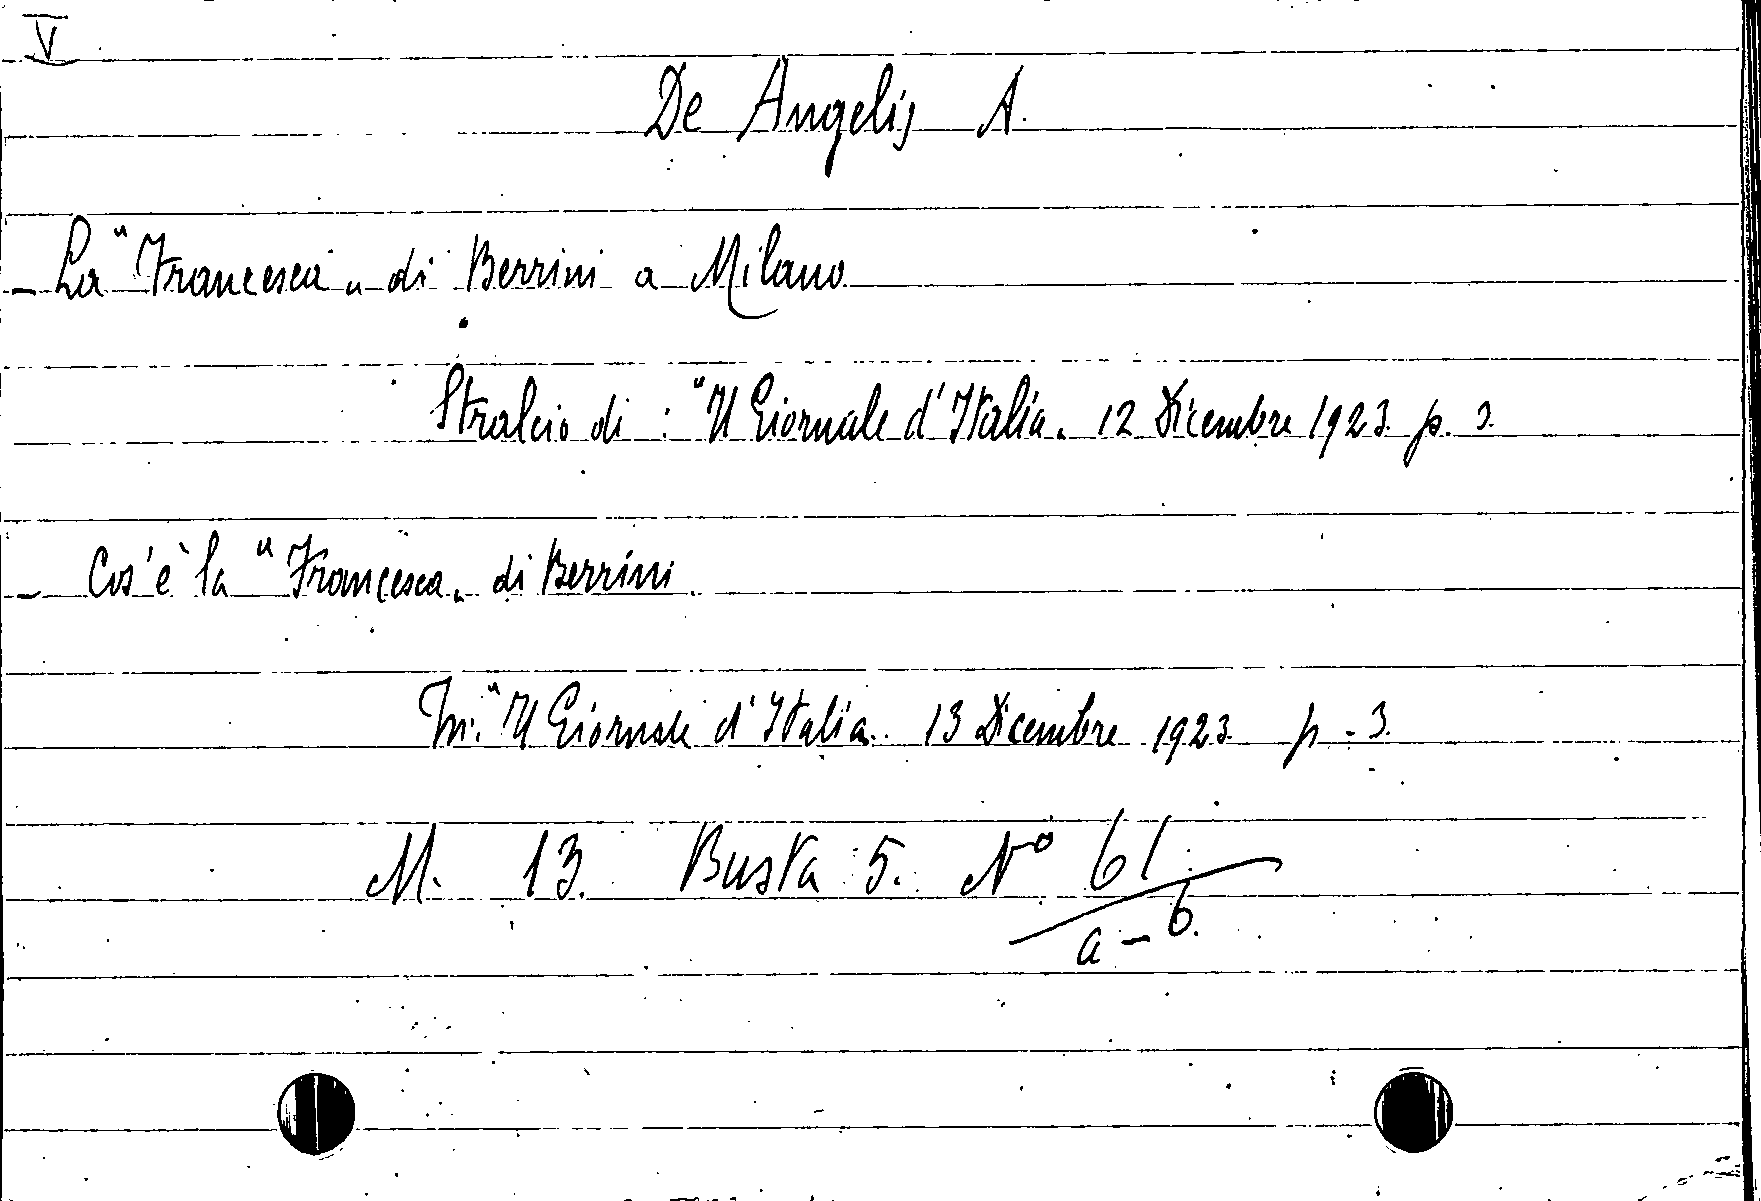 V
De Angelis A.
- La "Francesca" di Berrini a Milano
Stralcio di: "Il Giornale d'Italia" 12 Dicembre 1923. p. 3.
- Cos'è la "Francesca" di Berrini
In: "Il Giornale d'Italia" 13 Dicembre 1923 p. 3.
M. 13. Busta 5. N° 61
a - b.